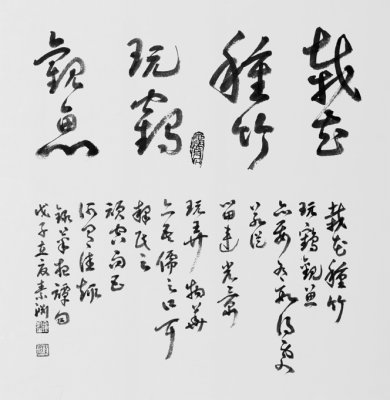 栽花
種竹
玩鶴
觀魚
栽花種竹
玩鶴觀魚
亦要有段自得處
若徒
留連光景
玩弄物華
亦吾儒之口耳
釋氏之
頑空而已
何有佳趣
錄菜根譚句
戊子立夏素